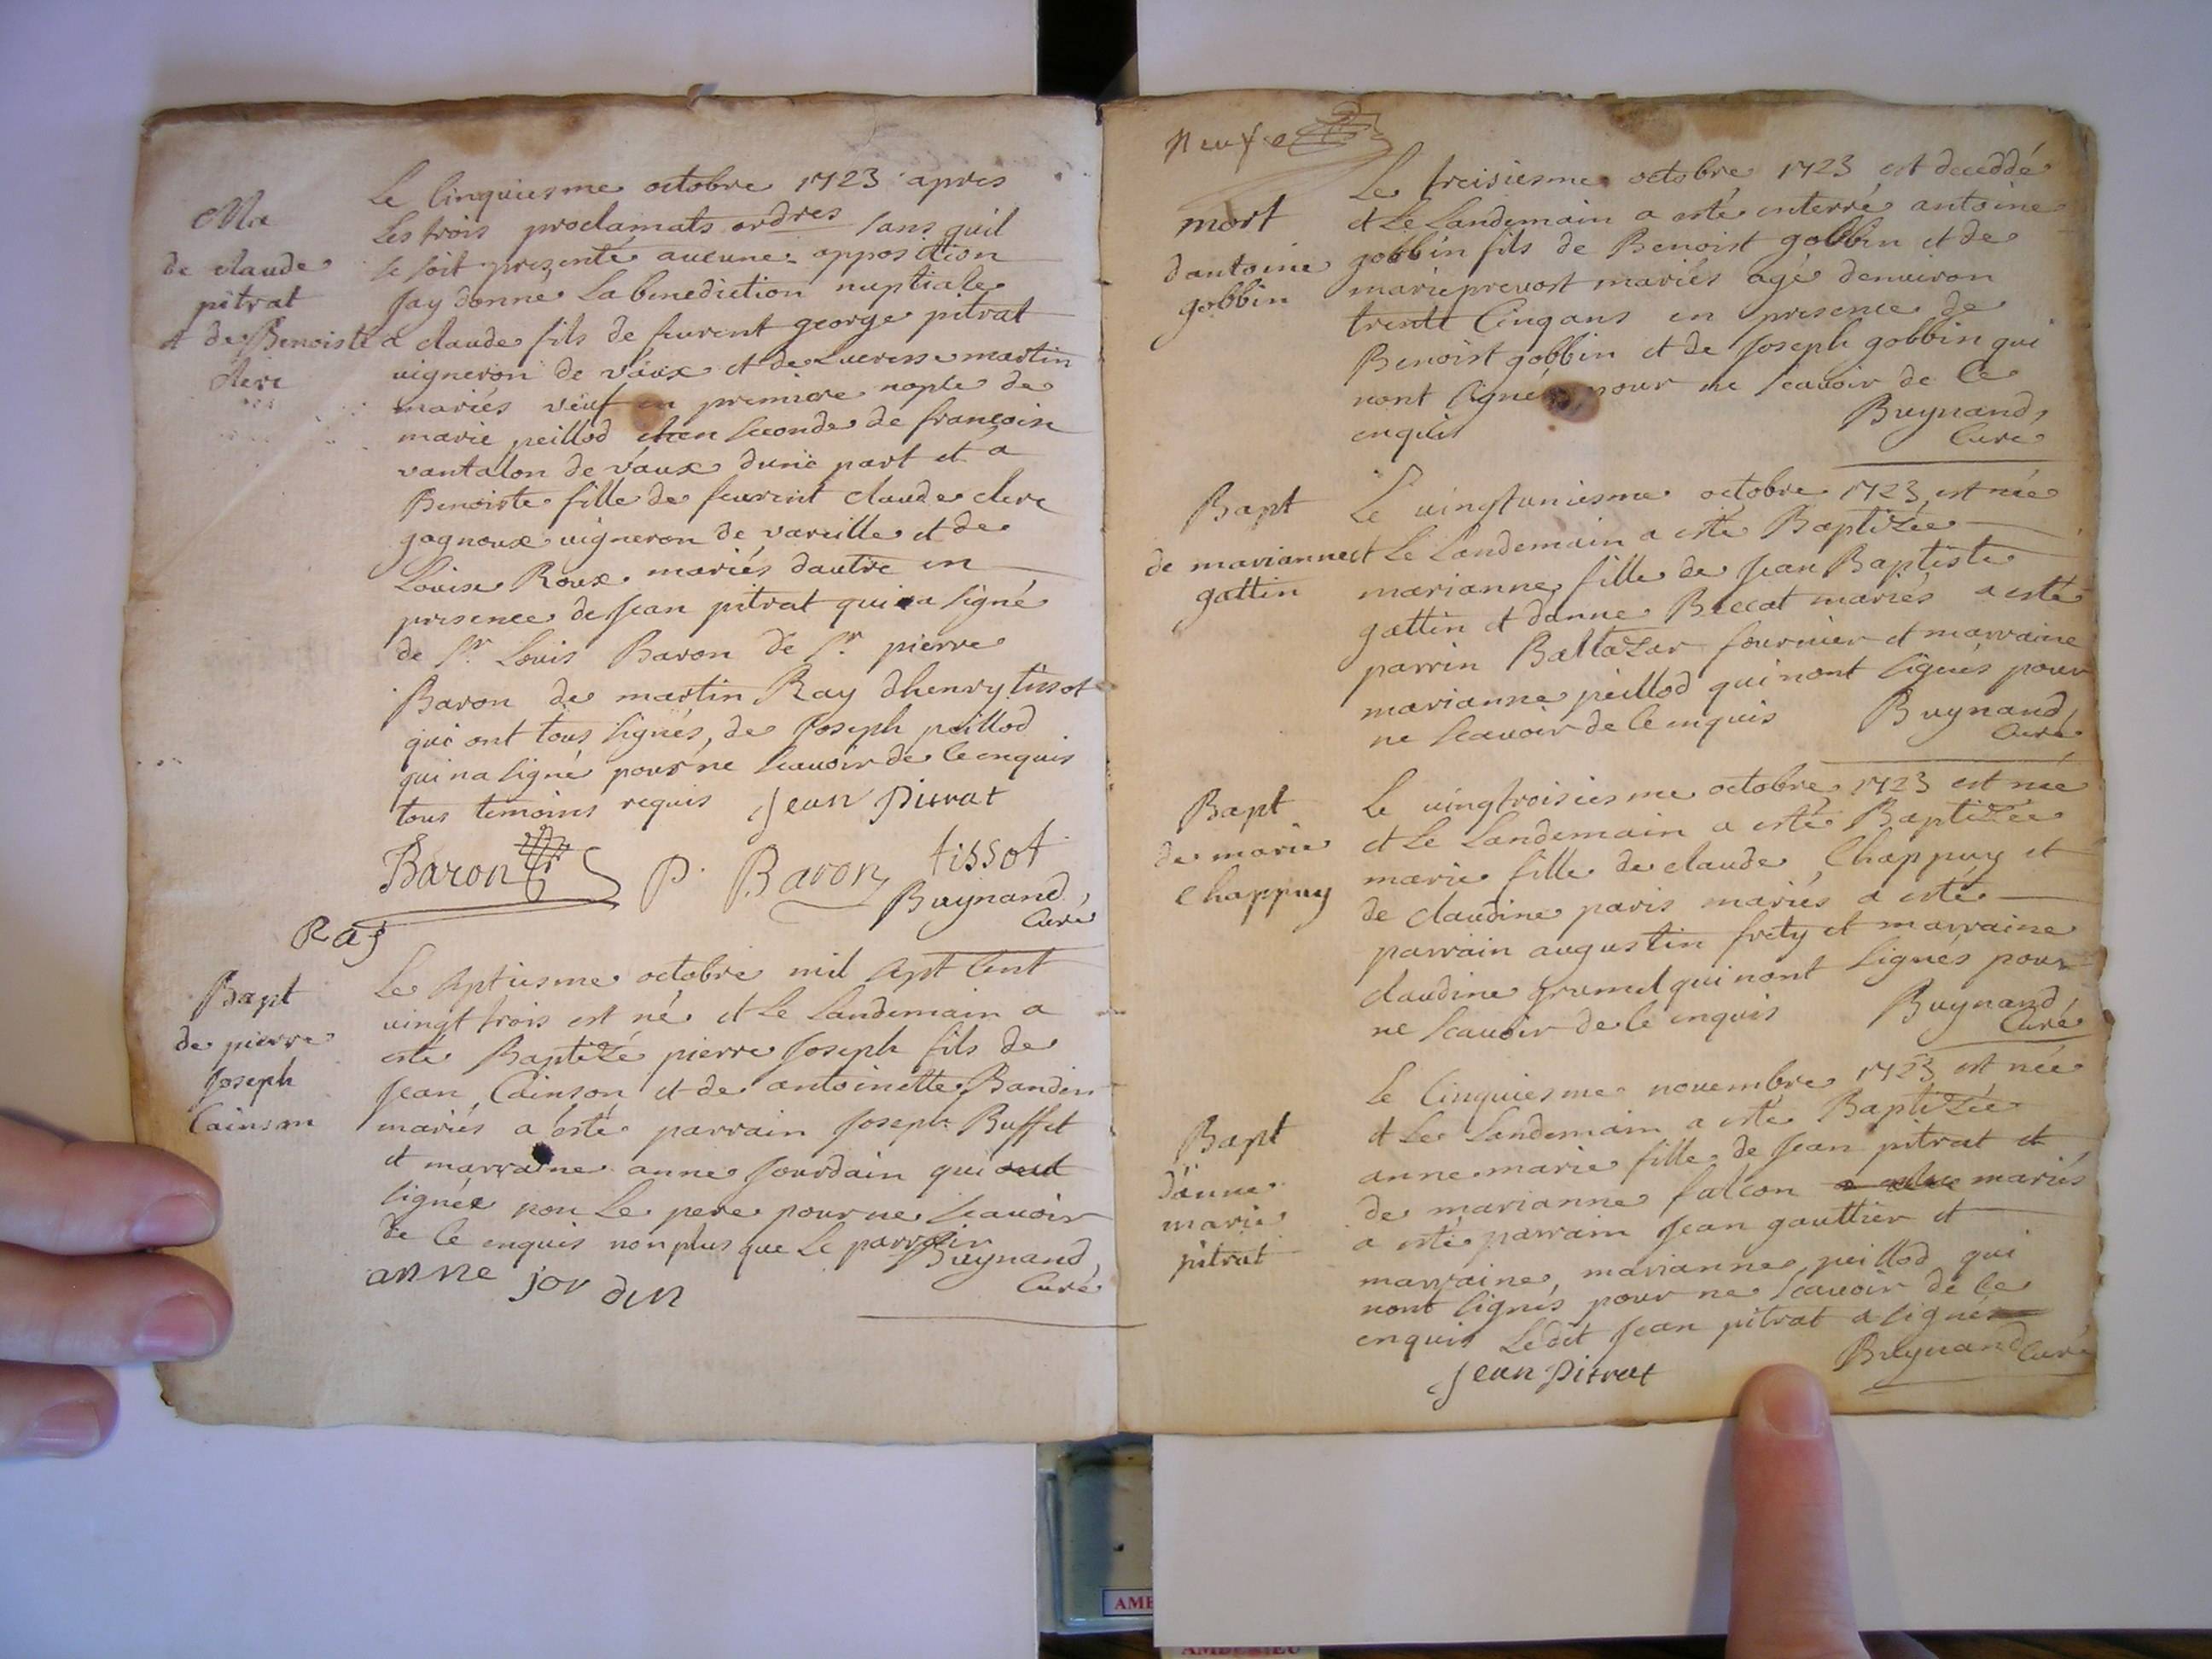 Mre
de claude
pitrat
et de Benoiste
clerc
Le Cinquiesme octobre 1723 apres
Les trois proclamats ordres sans quil
se soit presenté aucune opposition
Jay donné La benediction nuptiale
a claude fils de feurent george pitrat
vigneron de vaux et de Lucresse martin
mariés veuf en premiere nopce de
marie peillod et en seconde de francoise
vantalon de vaux dune part et a
Benoiste fille de feurent claude clerc
gagnoux vigneron de vareille et de
Louise Roux mariés dautre en
presence de Jean pitrat qui a signé
de Sr. Louis Baron de Sr. pierre
Baron de martin Ray dhenry tissot
qui ont tous signés, de Joseph peillod
qui na signé pour ne scauoir de ce enquis
tous temoins requis Jean Pitrat
Baron P. Baron tissot
Buynand
Curé
Raj
Bapt
de pierre
Joseph
Cainson
Le septiesme octobre mil sept cent
vingt trois est né et Le Landemain a
esté Baptizé pierre Joseph fils de
Jean Cainson et de antoinette Bandin
mariés a esté parrain Joseph Buffet
et marraine anne Jourdain qui ont
signée non Le pere pour ne scauoir
de ce enquis non plus que Le parrain
Buynand
Curé
anne jordin
Neuf e
mort
dantoine
gobbin
Le treisiesme octobre 1723 est deceddé
et Le Landemain a esté enterré antoine
gobbin fils de Benoist gobbin et de
marie prevost mariés agé denuiron
trente Cinq ans en presence de
Benoist gobbin et de Joseph gobbin qui
nont signés pour ne scauoir de ce
enquis
Buynand,
Curé
Bapt
de marianne
gattin
Le vingtuniesme octobre 1723 est née
et Le Landemain a esté Baptizée
marianne fille de Jean Baptiste
gattin et danne Beccat mariés a esté
parrin Baltazar fournier et marraine
marianne peillod qui nont signés pour
ne scauoir de ce enquis
Buynand,
Curé
Bapt
de marie
Chappuy
Le vingtroisiesme octobre 1723 est née
et Le Landemain a esté Baptizée
marie fille de claude Chappuy et
de claudine paris mariés a esté
parrain augustin frety et marraine
claudine grumel qui nont signés pour
ne scauoir de ce enquis
Buynand,
Curé
Bapt
danne
marie
pitrat
Le Cinquiesme nouembre 1723 est née
et Le Landemain a esté Baptizée
anne marie fille de Jean pitrat et
de marianne falcon mariés
a esté parrain Jean gauttier et
marraine, marianne peillod qui
nont signés pour ne scauoir de ce
enquis Ledit Jean pitrat a signé
Jean Pitrat
Buynand Curé